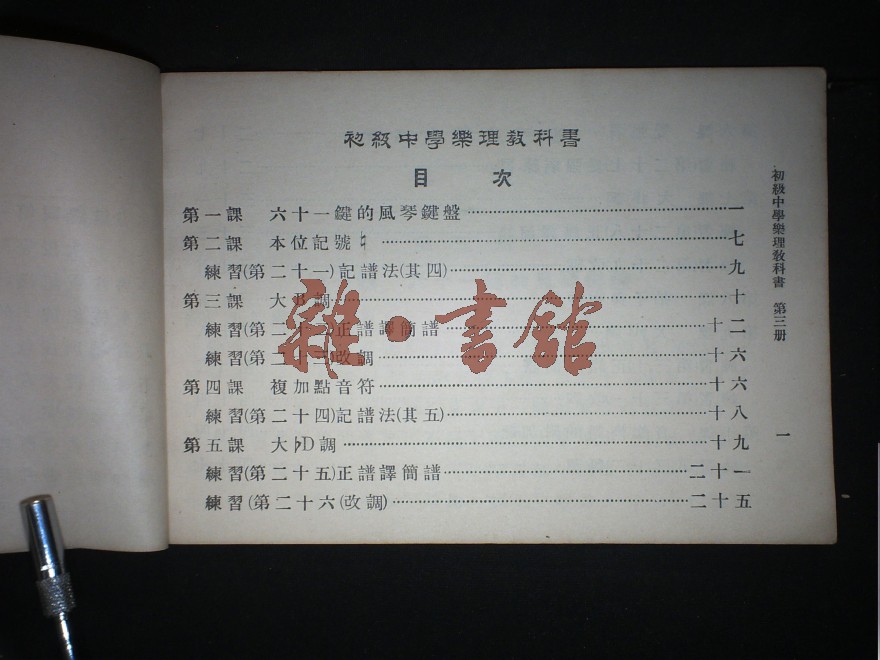 初級中學樂理教科書
目 次
第一課 六十一鍵的風琴鍵盤……一
第二課 本位記號♮……七
練習(第二十一)記譜法(其四)……九
第三課 大 調……十
練習(第二十二)正譜譯簡譜……十二
練習(第二十三)改調……十六
第四課 複加點音符……十六
練習(第二十四)記譜法(其五)……十八
第五課 大♭D調……十九
練習(第二十五)正譜譯簡譜……二十一
練習(第二十六(改調)……二十五
初級中學樂理教科書 第三册
一
雜·書館